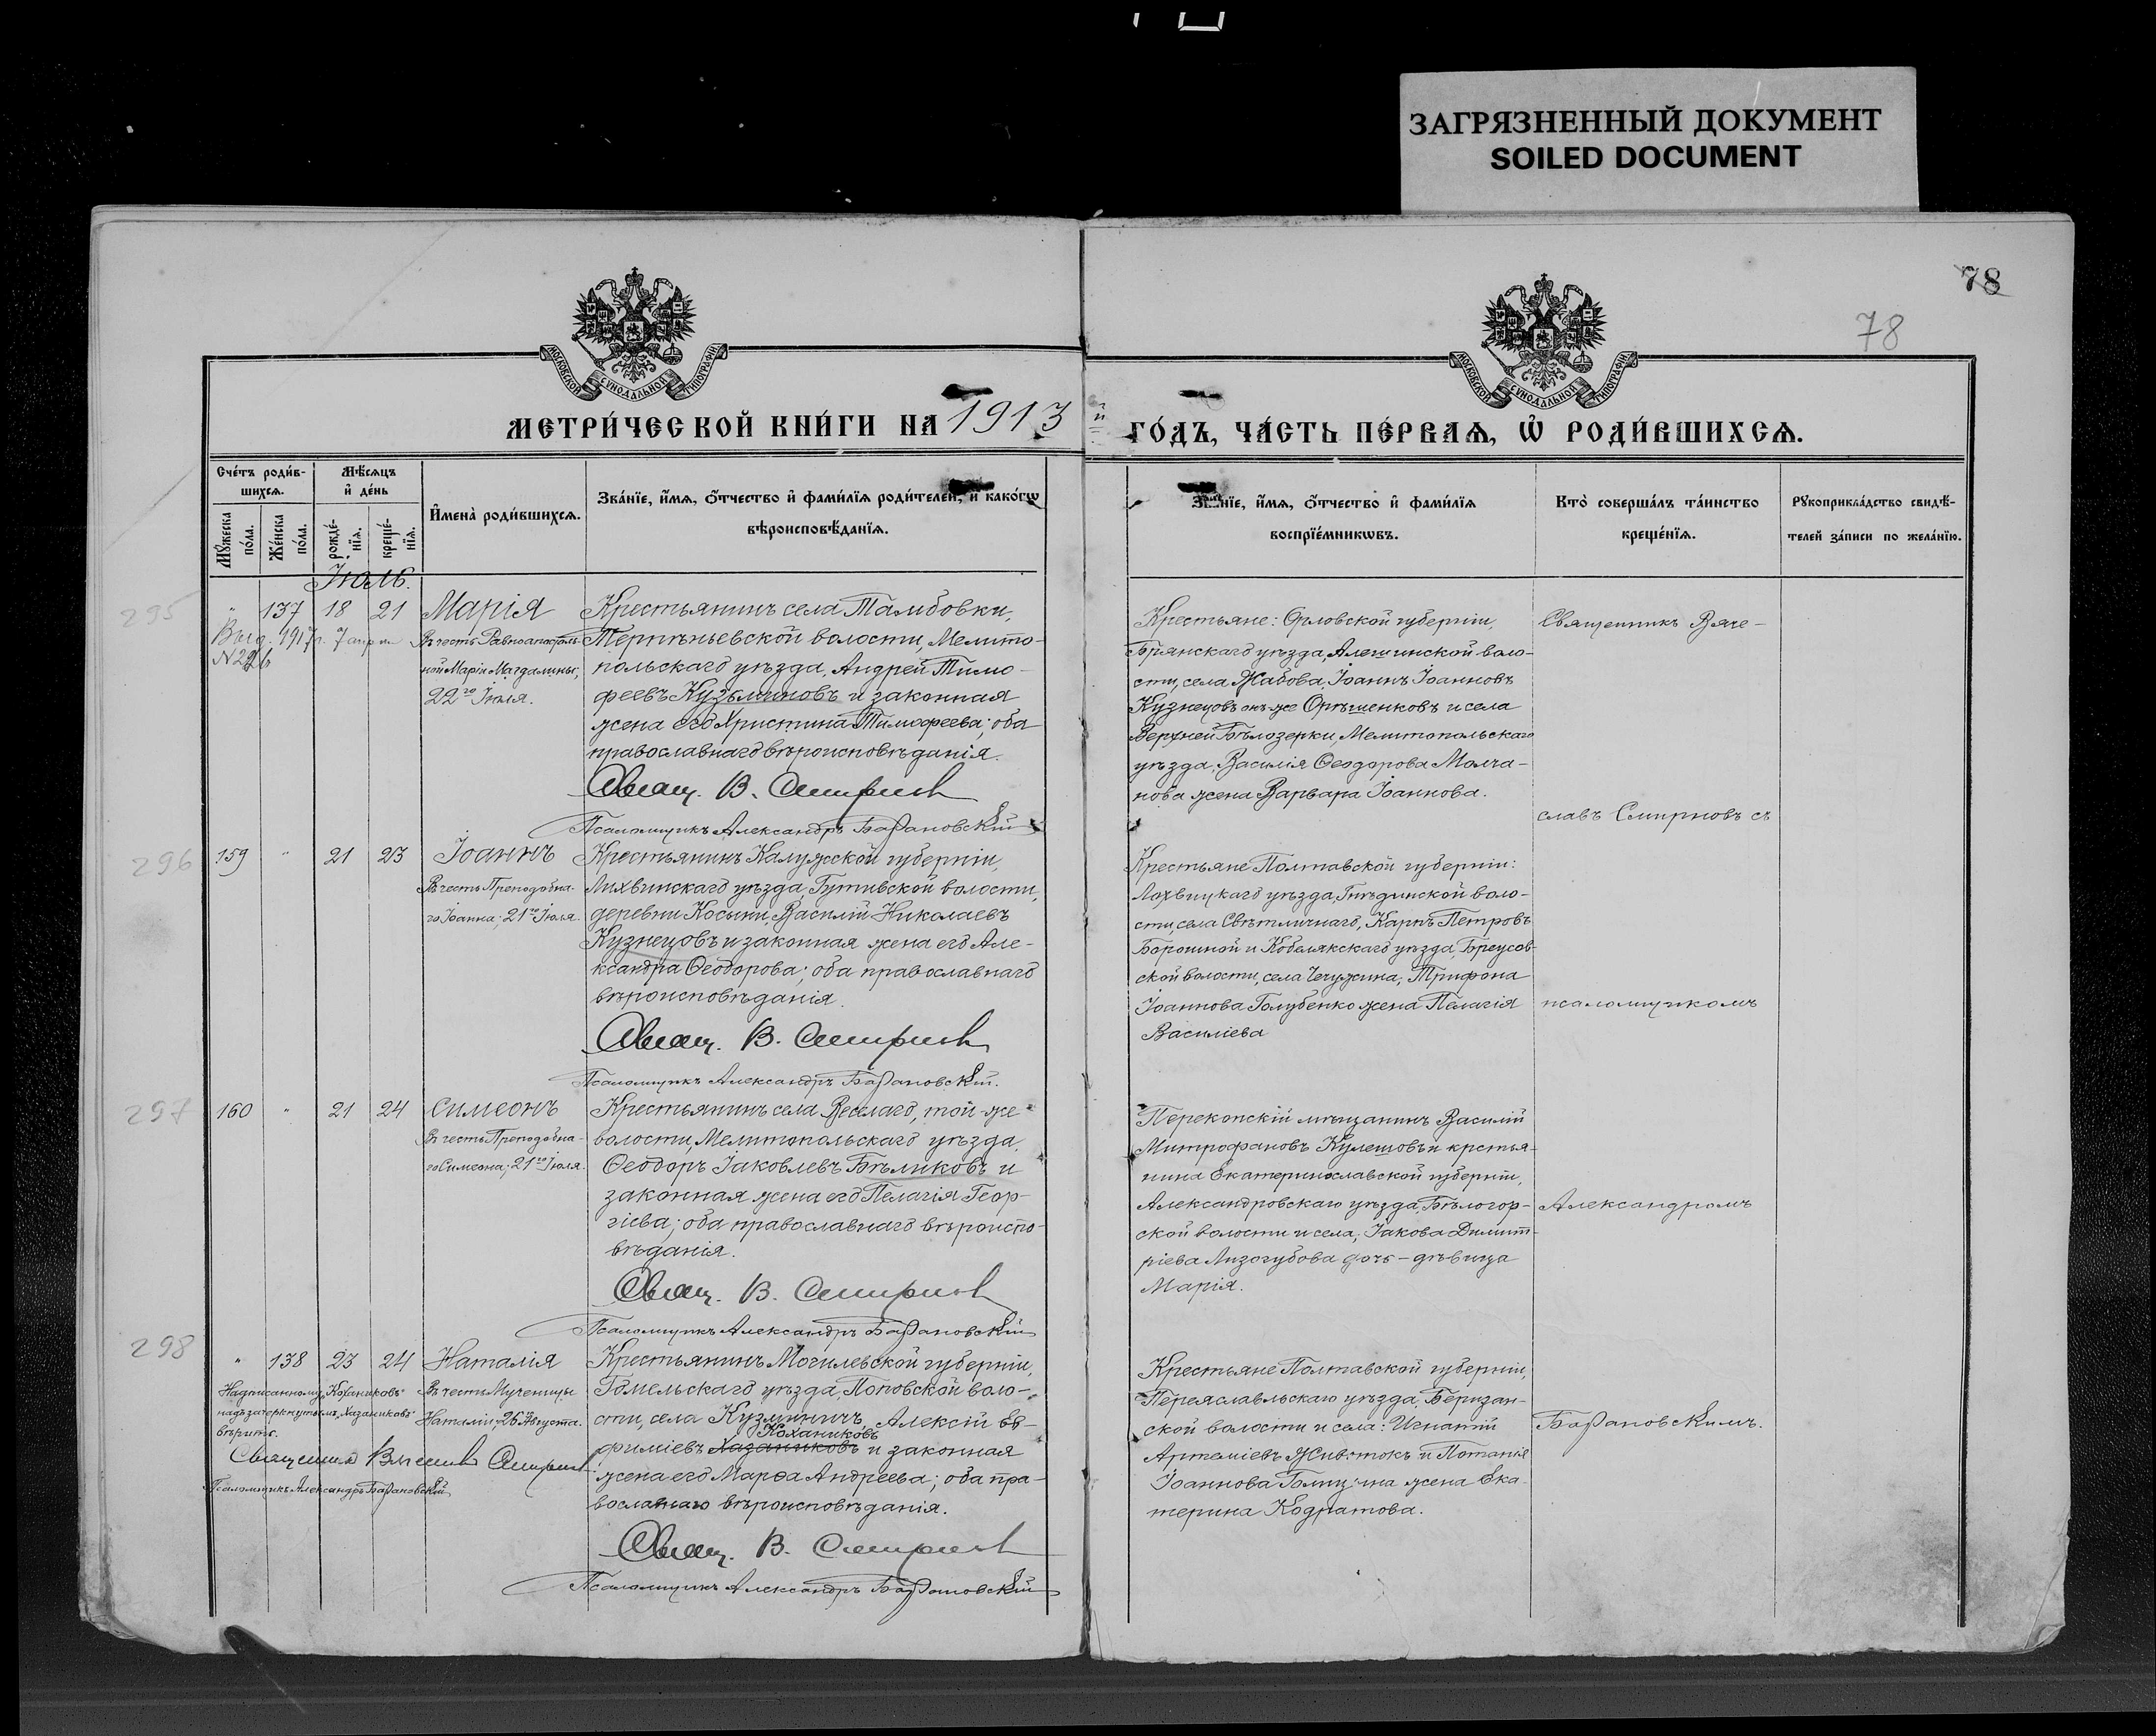 ЗАГРЯЗНЕННЫЙ ДОКУМЕНТ
SOILED DOCUMENT
78
78
МОСКОВСКОЙ СѴНОДАЛЬНОЙ ТИПОГРАФІИ
МОСКОВСКОЙ СѴНОДАЛЬНОЙ ТИПОГРАФІИ
МЕТРИ́ЧЕСКОЙ КНИ́ГИ НА 1913 й ГО́ДЪ, ЧА́СТЬ ПЕ́РВАѦ, Ѡ҆ РОДИ́ВШИХСѦ.
Сче́тъ роди́в-
шихсѧ.
Мѣ́сѧцъ
и҆ де́нь
Мꙋ́жеска по́ла.
Же́нска по́ла.
рожде́-
нїѧ.
креще́-
нїѧ.
И҆мена̀ роди́вшихсѧ.
Зва́нїе, и҆́мѧ, ѻ҆́тчество и҆ фами́лїѧ роди́телей, и҆ како́гѡ
вѣроисповѣ́данїѧ.
Зва́нїе, и҆́мѧ, ѻ҆́тчество и҆ фами́лїѧ
воспрїе́мникѡвъ.
Кто̀ соверша́лъ та́инство
креще́нїѧ.
Рꙋкоприкла́дство свидѣ́-
телей за́писи по жела́нїю.
Іюль.
295
" 137 18 21 Марія
Выд. 1917 г. 7 апрѣл
N226
Въ честь Равноапостоль-
ной Маріи Магдалины,
22го Іюля.
Крестьянинъ села Тамбовки,
Терпѣньевской волости, Мелито-
польскаго уѣзда, Андрей Тимо-
феевъ Кузьминовъ и законная
жена его Христина Тимофеева; оба
православнаго вѣроисповѣданія.
Свящ. В. Смирновъ
Псаломщикъ Александръ Барановскій
Крестьяне: Орловской губерніи,
Брянскаго уѣзда, Алешинской воло-
сти, села Жабова, Іоаннъ Іоанновъ
Кузнецовъ онъ же Орѣшенковъ и села
Верхней Бѣлозерки, Мелитопольскаго
уѣзда, Василія Ѳеодорова Молча-
нова жена Варвара Іоаннова.
Священникъ Вяче-
славъ Смирновъ съ
296
159 " 21 23 Іоаннъ
Въ честь Преподобна-
го Іоанна; 21го Іюля.
Крестьянинъ Калужской губерніи,
Лихвинскаго уѣзда, Бутивской волости,
деревни Косыни, Василій Николаевъ
Кузнецовъ и законная жена его Але-
ксандра Ѳеодорова; оба православнаго
вѣроисповѣданія.
Свящ. В. Смирновъ
Псаломщикъ Александръ Барановскій.
Крестьяне Полтавской губерніи:
Лохвицкаго уѣзда, Гнѣдинской воло-
сти, села Свѣтличнаго, Карпъ Петровъ
Борошной и Кобелякскаго уѣзда, Бреусов-
ской волости, села Чечужина, Трифона
Іоаннова Голубенко жена Пелагія
Василіева
псаломщикомъ
297
160 " 21 24 Симеонъ
Въ честь Преподобна-
го Симеона; 21го Іюля.
Крестьянинъ села Веселаго, той-же
волости, Мелитопольскаго уѣзда,
Ѳеодоръ Іаковлевъ Бѣликовъ и
законная жена его Пелагія Геор-
гіева; оба православнаго вѣроиспо-
вѣданія.
Свящ. В. Смирновъ
Псаломщикъ Александръ Барановскій
Перекопскій мѣщанинъ Василій
Митрофановъ Кулешовъ и крстья-
нина Екатеринославской губерніи,
Александровскаго уѣзда, Бѣлогор-
ской волости и села, Іакова Димит-
ріева Лизогубова дочь – дѣвица
Марія.
Александромъ
298
" 138 23 24 Наталія
Въ честь Мученицы
Наталіи; 26 Августа.
Надписанному "Коханиковъ"
надъ зачеркнутымъ "Хазаниковъ"
вѣрить.
Священникъ Вячеславъ Смирновъ
Псаломщикъ Александръ Барановскій
Крестьянинъ Могилевской губерніи,
Гомельскаго уѣзда, Поповской воло-
сти, села Кузминичъ, Алексій Ев-
Коханиковъ
фиміевъ Хазаниковъ и законная
жена его Марѳа Андреева; оба пра-
вославнаго вѣроисповѣданія.
Свящ. В. Смирновъ
Псаломщикъ Александръ Барановскій
Крестьяне Полтавской губерніи,
Переяславльскаго уѣзда, Беризан-
ской волости и села: Игнатій
Артеміевъ и Потапія
Іоаннова жена Ека-
терина Кодратова.
Барановскимъ.